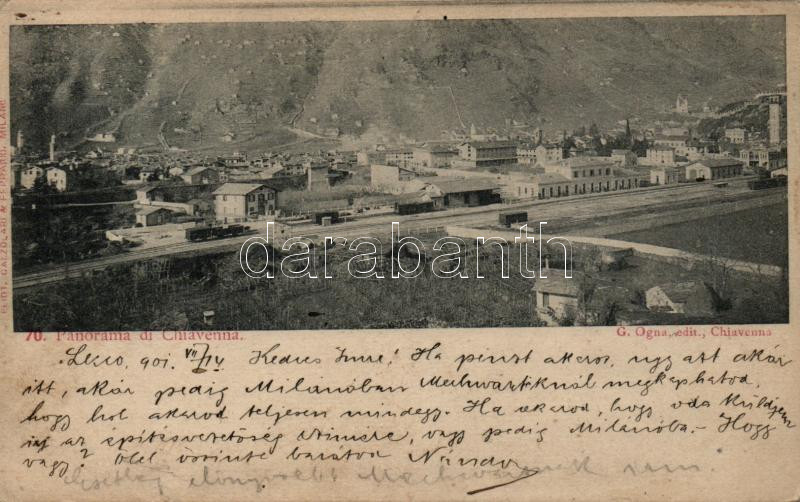 ELIOT. CALZOLARI & FERRARIO. MILANO
darabanth
70. Panorama di Chiavenna.
G. Ogna, edit., Chiavenna
Lecco, 901. VII/14 Kedves Imre! Ha pénzt akarsz, ugy azt akár
itt, akár pedig Milanóban Mechwartéknál megkaphatod,
hogy hol akarod teljesen mindegy. Ha akarod, hogy oda küldjem
az építésvezetőség címére, vagy pedig Milanóba.- Hogy
vagy? Ölel őszinte barátod Nándor